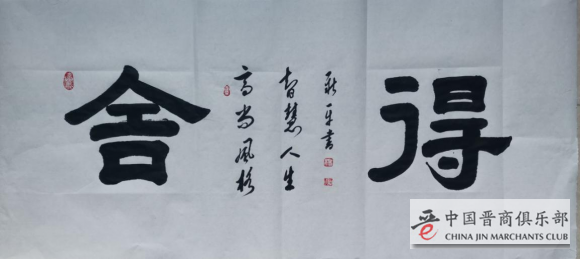 舍
高尚风格
智慧人生
平书
得
晋
中国晋商俱乐部
CHINA JIN MARCHANTS CLUB